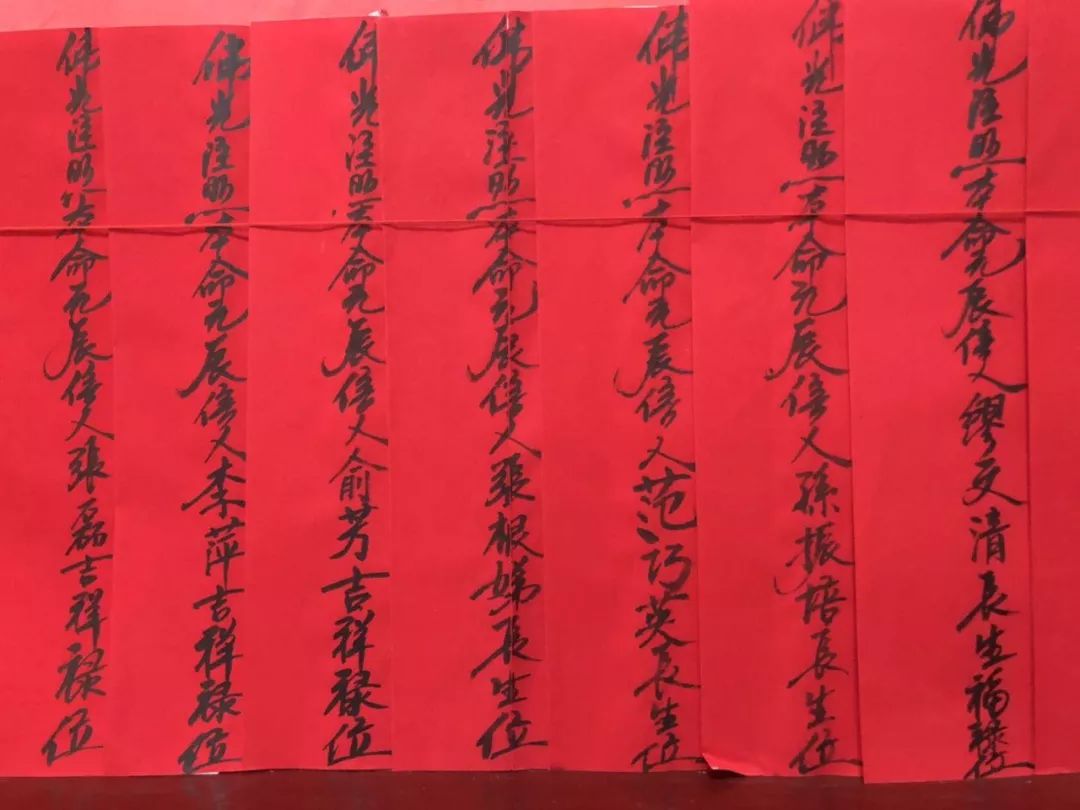 佛光注照本命元辰信人缪文清长生福禄位
佛光注照本命元辰信人孫振培长生位
佛光注照本命元辰信人范巧英长生位
佛光注照本命元辰信人張根娣长生位
佛光注照本命元辰信人俞芳吉祥禄位
佛光注照本命元辰信人李萍吉祥禄位
佛光注照本命元辰信人張磊吉祥禄位